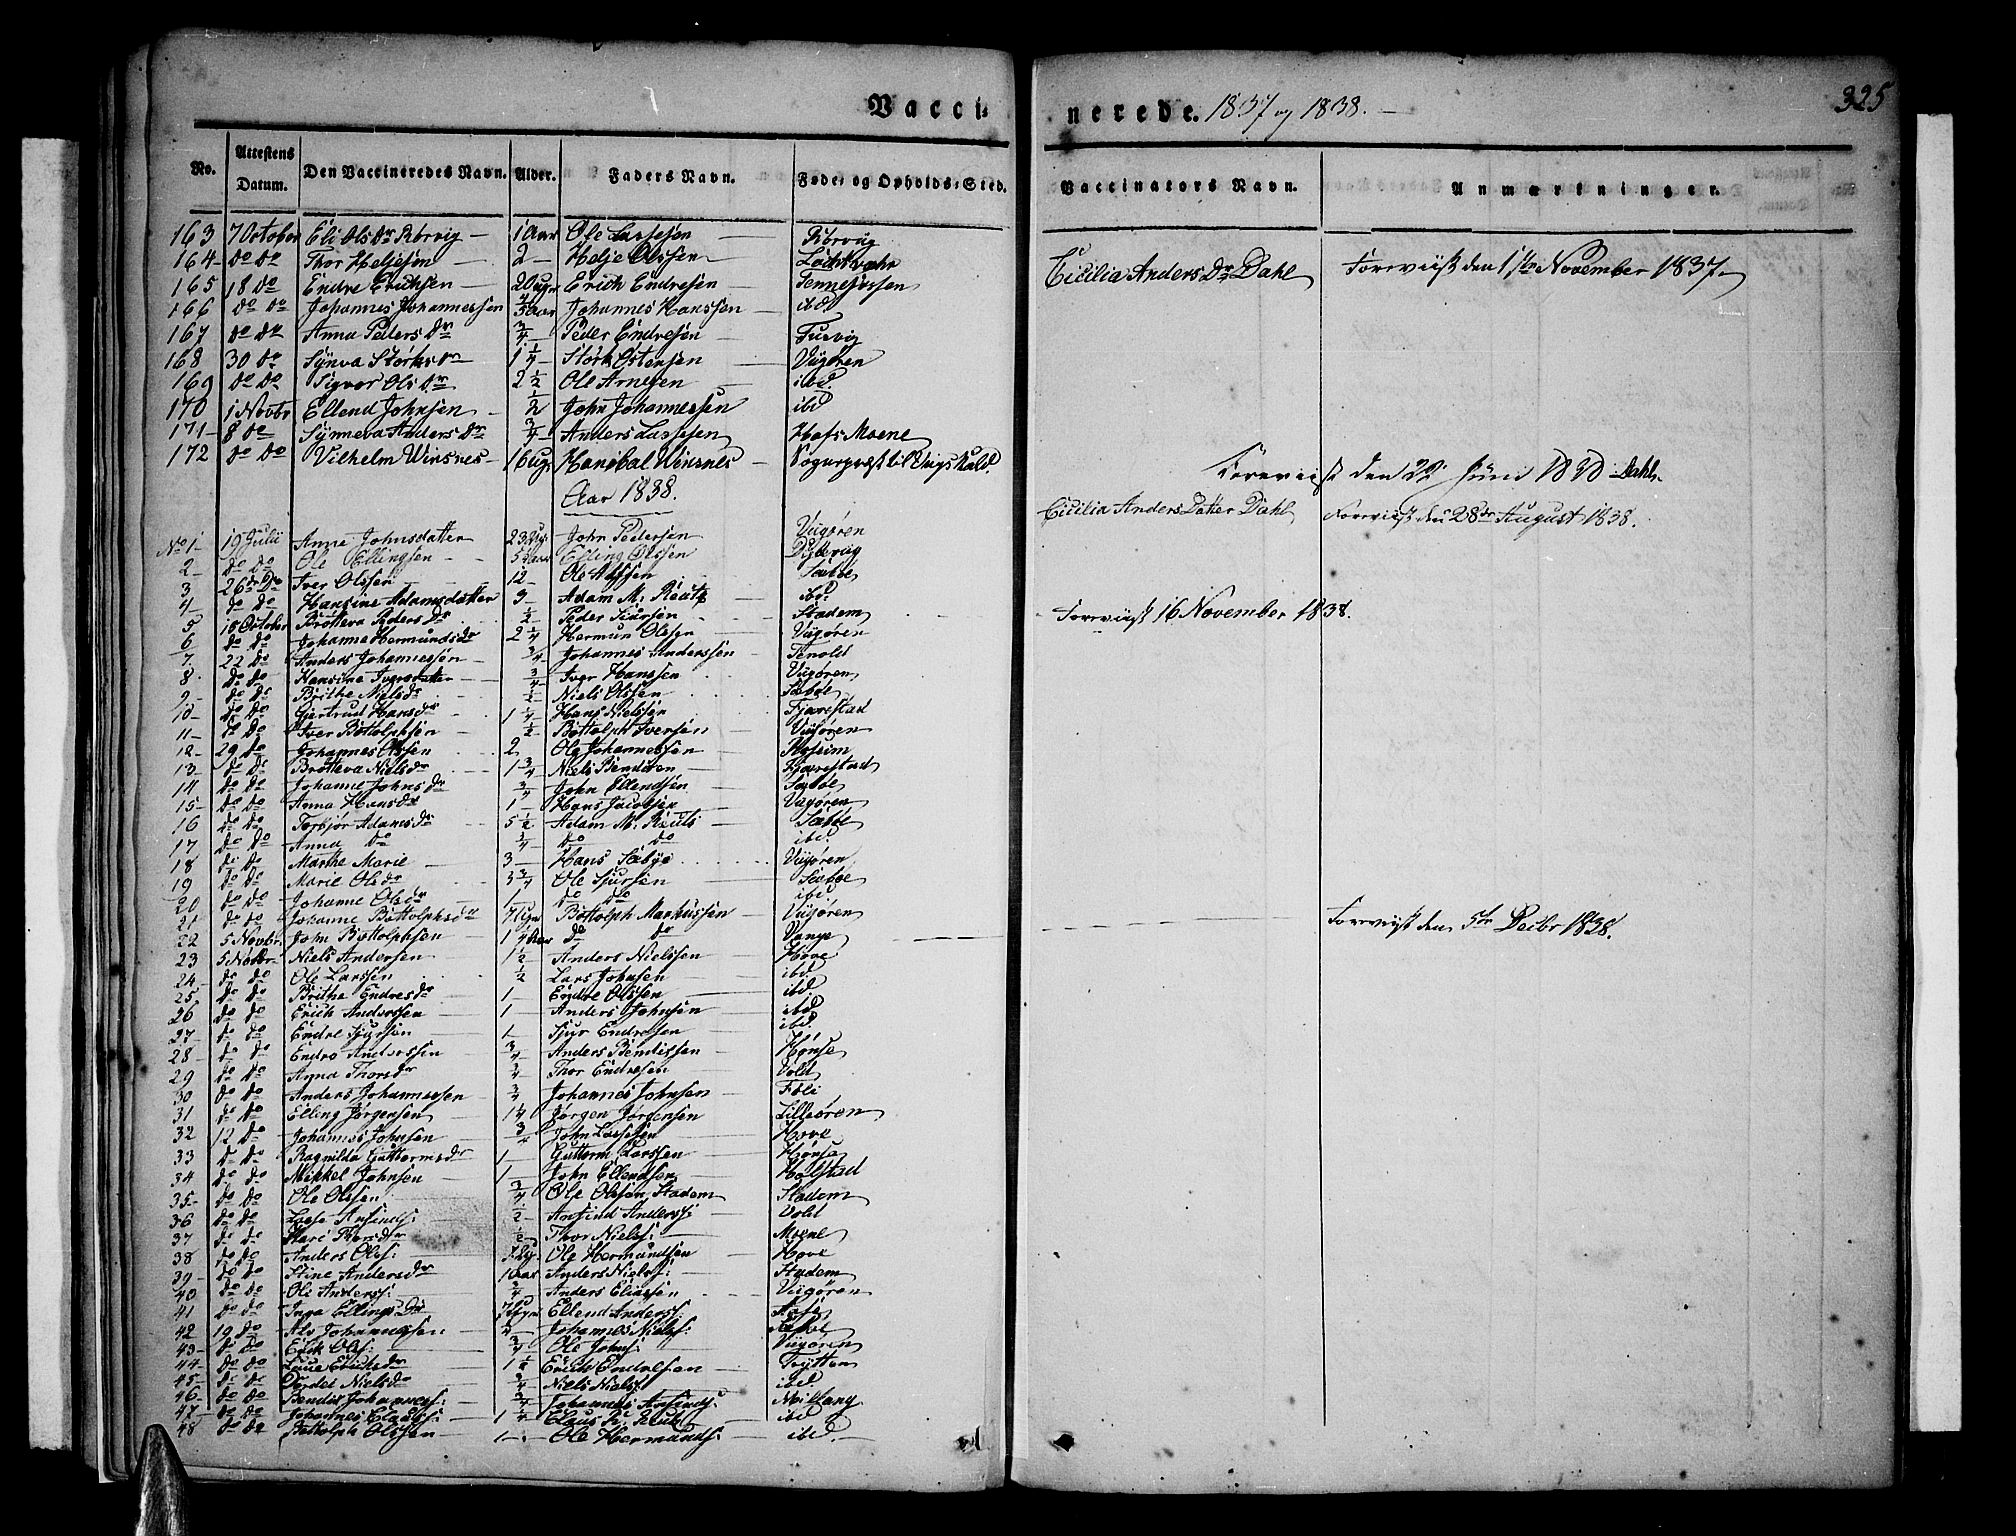 Vaccinerede. 1837 og 1838.
325
No. Attestens Datum. Den Vaccineredes Navn. Alder. Faders Navn. Føde- og Opholds-Sted. Vaccinators Navn. Anmærkninger.
163 7 October Eli Ols Dr Rørvig 1 Aar Ole Lassesøn Rørvig Cicilia Anders Dr Dahl Foreviist den 17de November 1837
164 do do Thor Heljesøn 2 Helje Olssen
165 18 do Endre Erichsen 20 Ugr Erich Endresen
166 do do Johannes Johannessen Johannes Hanssen ibd
167 do do Anna Peders Dr 3/4 Peder Endresen
168 30 do Synva Størks Dr 1 1/4 Størk Ostensen Viigøren
169 do do Sigvor Ols Dr 2 1/2 Ole Arnesen ibd.
170 1 Novbr Ellend Johnsen 1/2 John Johannessen ibd
171 8 do Synneva Anders Dr 3/4 Anders Lassesen Hofs Moene
172 do do Vilhelm Winsnes 16 Ugr Hanibal Winsnes
Foreviist den 22 Juni 1838 Dahl
Aar 1838.
No 1 19 Julii Anne Johnsdatter 23 Ugr John Pedersen Viigøren Cicilia Anders Datter Dahl Foreviist den 28de August 1838.
2 do do Ole Ellingsen 5 Aar Elling Olssen Dyhevig
3 26 do Iver Olssen 12 Ole Sæbøe
4 do do Hansine Adamsdatter 3 Adam M. ibd.
5 18 October Brotteva Peders Dr 1/2 Peder Stadem Foreviist 16 November 1838.
6 do do Johanne Hermunds dr 2 1/4 Hermun Olsen Viigøren
7 22 do Anders Johannessen 3/4 Johannes Anderssen Tenold
8 do do Hansine Iversdatter 3/4 Iver Hanssen Viigøren
9 do do Brithe Niels dr 1/2 Niels Olssen Sæbøe
10 do do Giertrud Hans dr 1 1/4 Hans Nielssen Hjærestad
11 do do Iver Bottolphsen 1/2 Bottolph Iversen Viigøren
12 29 do Johannes Olssen 2 Ole Johannessen
13 do do Brotteva Niels dr 1 3/4 Niels Hjærestad
14 do do Johanne Johns dr 3/4 John Ellendsen Sæbøe
15 do do Anna Hans dr 1 Hans Jacobsen Viigøren
16 do do Torbjør Adams dr 5 1/2 Adam M. Sæbøe
17 do do Anna do 3/4 do do ibd
18 do do Marthe Marie 3 Hans Sæbye Viigøren
19 do do Marie Ols dr 3 3/4 Ole Sjursen Sæbøe
20 do do Johanne Ols dr 1 do do ibd
21 do do Johanne Bottolphs dr 7 Ugr Bottolph Markussen Viigøren Foreviist den 5te Decbr 1838.
22 5 Novbr. John Bottolphsen 1 1/4 Aar do do Vange
23 5 Novbr. Niels Andersen 1 1/2 Anders Nielssen Hove
24 do do Ole Larssen 1/2 Lars Johnsen ibd.
25 do do Brithe Endres dr 1 Endre Olssen ibd.
26 do do Erich Anderssen 1 Anders Johnsen ibd
27 do do Endre Sjurssen 1 Sjur Endresen ibd.
28 do do Endre Anderssen 3/4 Anders Bendixsen Hønse
29 do do Anna Thors dr 3/4 Thor Endresen Vold
30 do do Anders Johannessen 3/4 Johannes Johnsen Føli
31 do do Elling Jørgensen 1 1/4 Jørgen Jørgensen Lilleøren
32 12 do Johannes Johnsen 3/4 John Lassesen Hove
33 do do Ragnilda Guttorms dr 1 Guttorm Larssen Hønse
34 do do Mikkel Johnsen 1 John Ellendsen Holstad
35 do do Ole Olssen 3/4 Ole Olssøn Stadem Stadem
36 do do Lasse Arfinds: 1/2 Arfind Anderss: Vold
37 do do Kari Thors dr 1/2 Thor Niels: Moene
38 do do Anders Oles: Ole Hermundsen Hove
39 do do Stine Anders dr 10 Aar Anders Niels: Stadem
40 do do Ole Anders: 3/4 Anders Eliassen Viigøren
41 do do Inga Ellings Dr Ellend Anders:
42 19 do Alv Johannessen Johannes Niels:
43 do do Erik Ols: 3/4 Ole Johns: Viigøren
44 do do Erichs dr 1 1/2 Erich Endresen Trytten
45 do do Dordei Niels dr 3/4 Niels Niels: ibd
46 do do Bendix Johannes: 3/4 Johannes Arfinds:
47 do do Johannes Claus: 1 1/4 Claus ibd
48 do do Bottolph Olssen 1 Ole Hermunds: ibd.